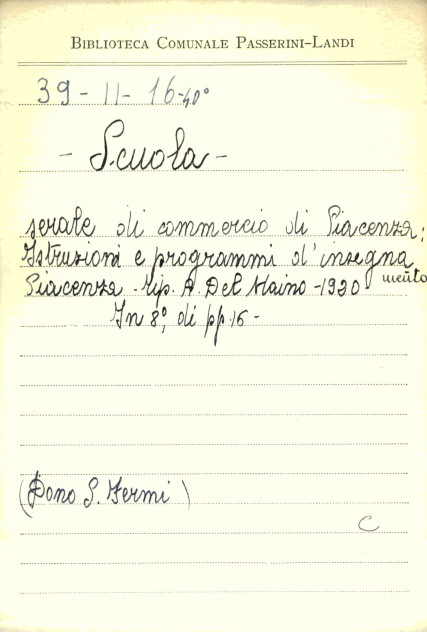 BIBLIOTECA COMUNALE PASSERINI-LANDI
39-II-16-40°
- Scuola -
serale di commercio di Piacenza:
Istruzioni e programmi d'insegna
mento
Piacenza - Tip. A. Del Maino - 1920
In 8°, di pp. 16 -
(Dono S. Fermi)
C